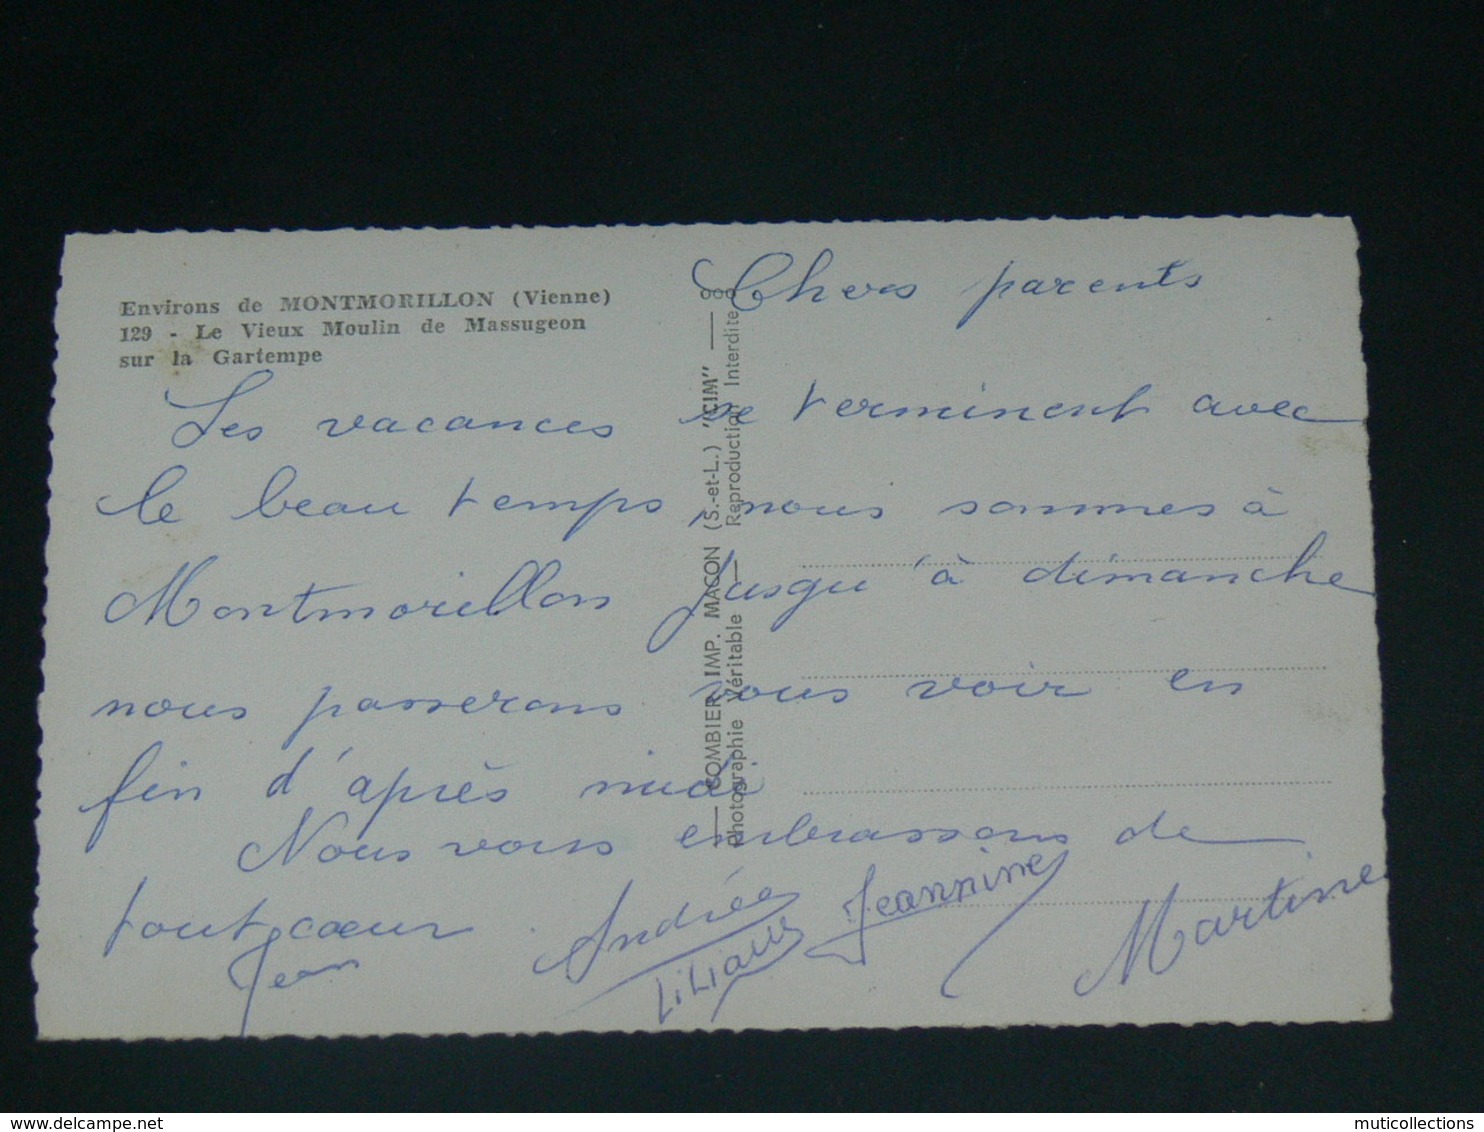 Environs de MONTMORILLON (Vienne)
129 - Le Vieux Moulin de Massugeon
sur la Gartempe
COMBIER IMP. MACON (S.-et-L.) "CIM"
Photographie Véritable — Reproduction Interdite
Chers parents
Les vacances se terminent avec
le beau temps, nous sommes à
Montmorillon jusqu'à dimanche
nous passerons vous voir en
fin d'après midi
Nous vous embrassons de
tout cœur
Jean
Andrée
Liliane
Jeannine
Martine
muticollections